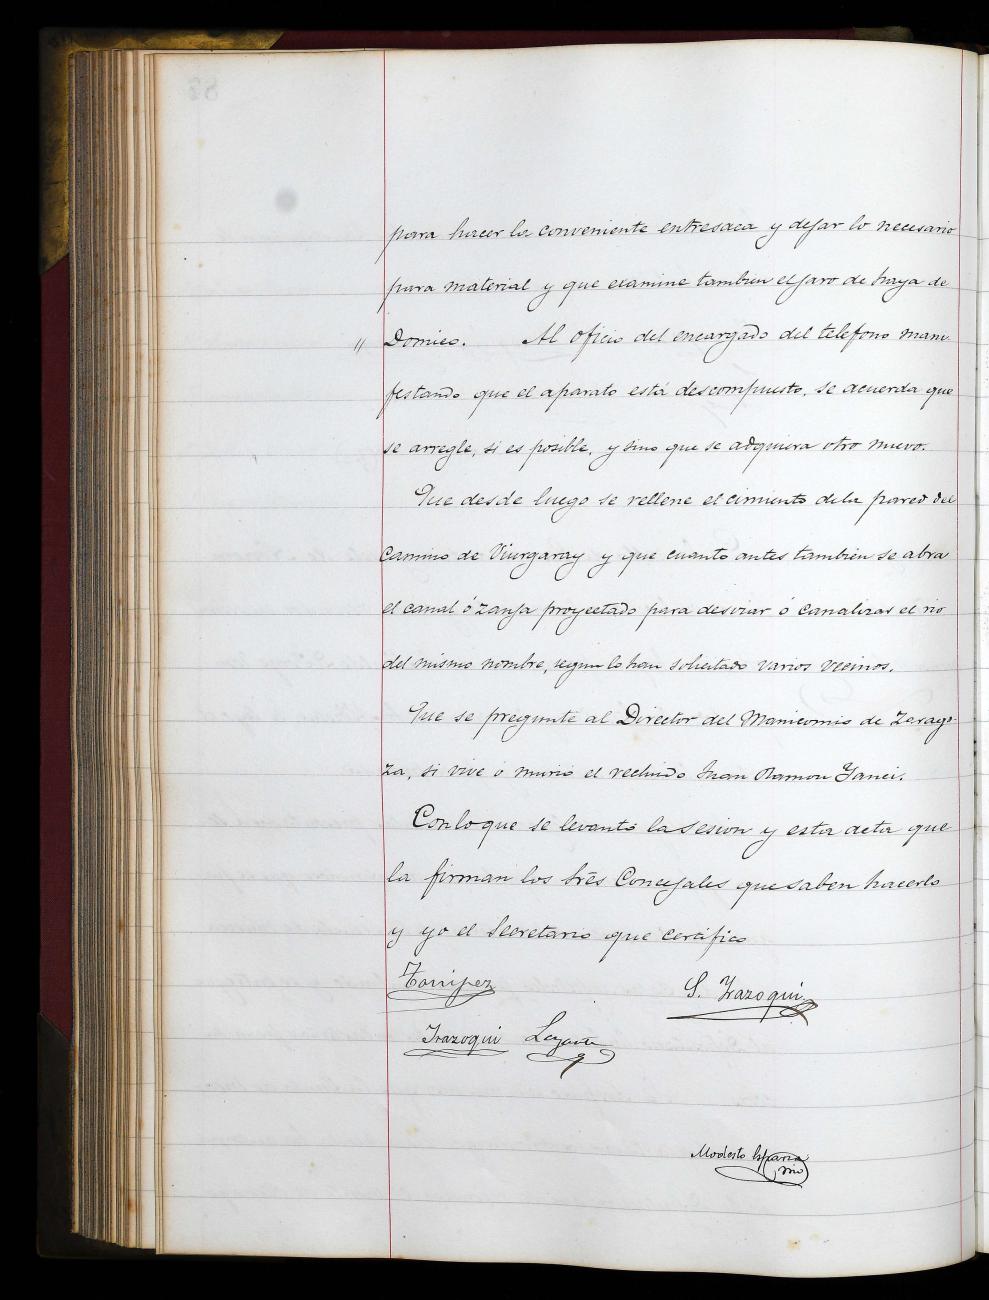 para hacer la conveniente entresaca y dejar lo necesario
para material y que examine tambien el jaro de haya de
" Domico. Al oficio del encargado del telefono mani-
festando que el aparato está descompuesto, se acuerda que
se arregle, si es posible, y sino que se adquiera otro nuevo.
Que desde luego se rellene el cimiento de la pared del
Camino de Viurgaray y que cuanto antes tambien se abra
el canal ó zanja proyectado para desviar ó canalizar el rio
del mismo nombre, segun lo han solicitado varios vecinos.
Que se pregunte al Director del Manicomio de Zarago-
za, si vive ó murio el recluido Juan Ramon Ganci.
Con lo que se levantó la sesion y esta acta que
la firman los tres Concejales que saben hacerlo
y yo el Secretario que certifico
S. Irazoqui
Irazoqui Lazarte
Modesto Esparza
srio